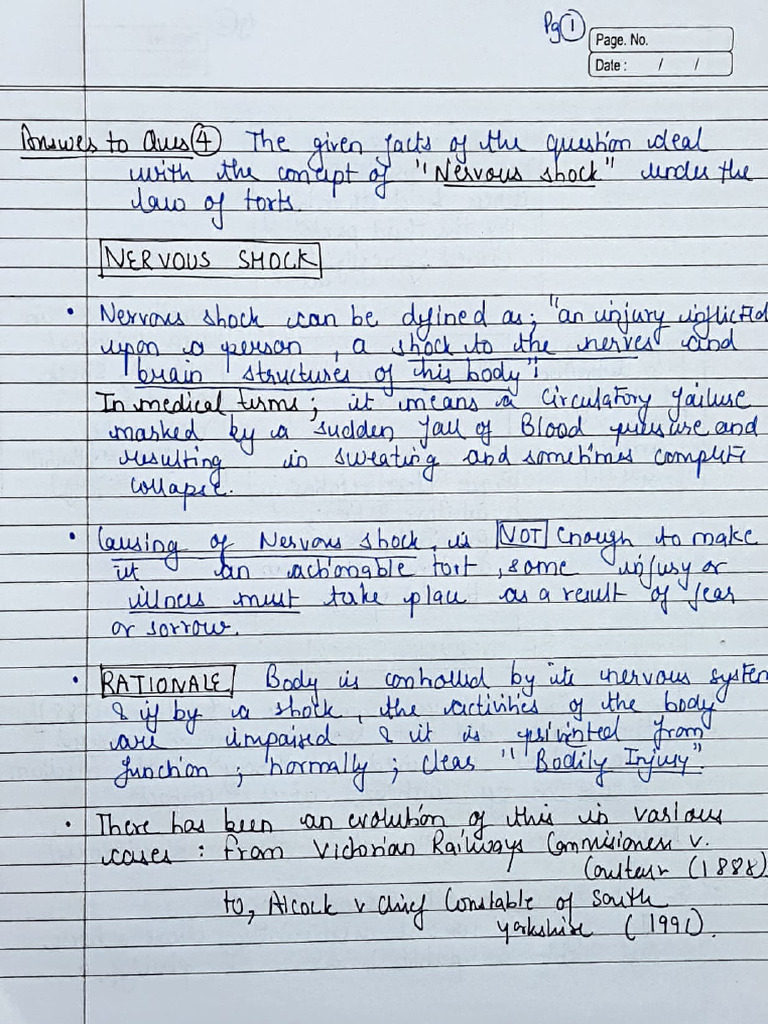 Pg ①
Page. No.
Date : / /
Answer to Ques ④ The given facts of the question deal
with the concept of "Nervous shock" under the
law of torts.
NERVOUS SHOCK
• Nervous shock can be defined as; "an injury inflicted
upon a person, a shock to the nerves and
brain structures of his body".
In medical terms; it means a circulatory failure
marked by a sudden fall of Blood pressure and
resulting in sweating and sometimes complete
collapse.
• Causing of Nervous shock, is NOT enough to make
it an actionable tort, some injury or
illness must take place as a result of fear
or sorrow.
• RATIONALE Body is controlled by its nervous system
& if by a shock, the activities of the body
are impaired & it is prevented from
function; normally; clear "Bodily Injury".
• There has been an evolution of this in various
cases: From Victorian Railways Commisioners v.
(1888)
to, Alcock v Chief Constable of South
Yorkshire (1991).